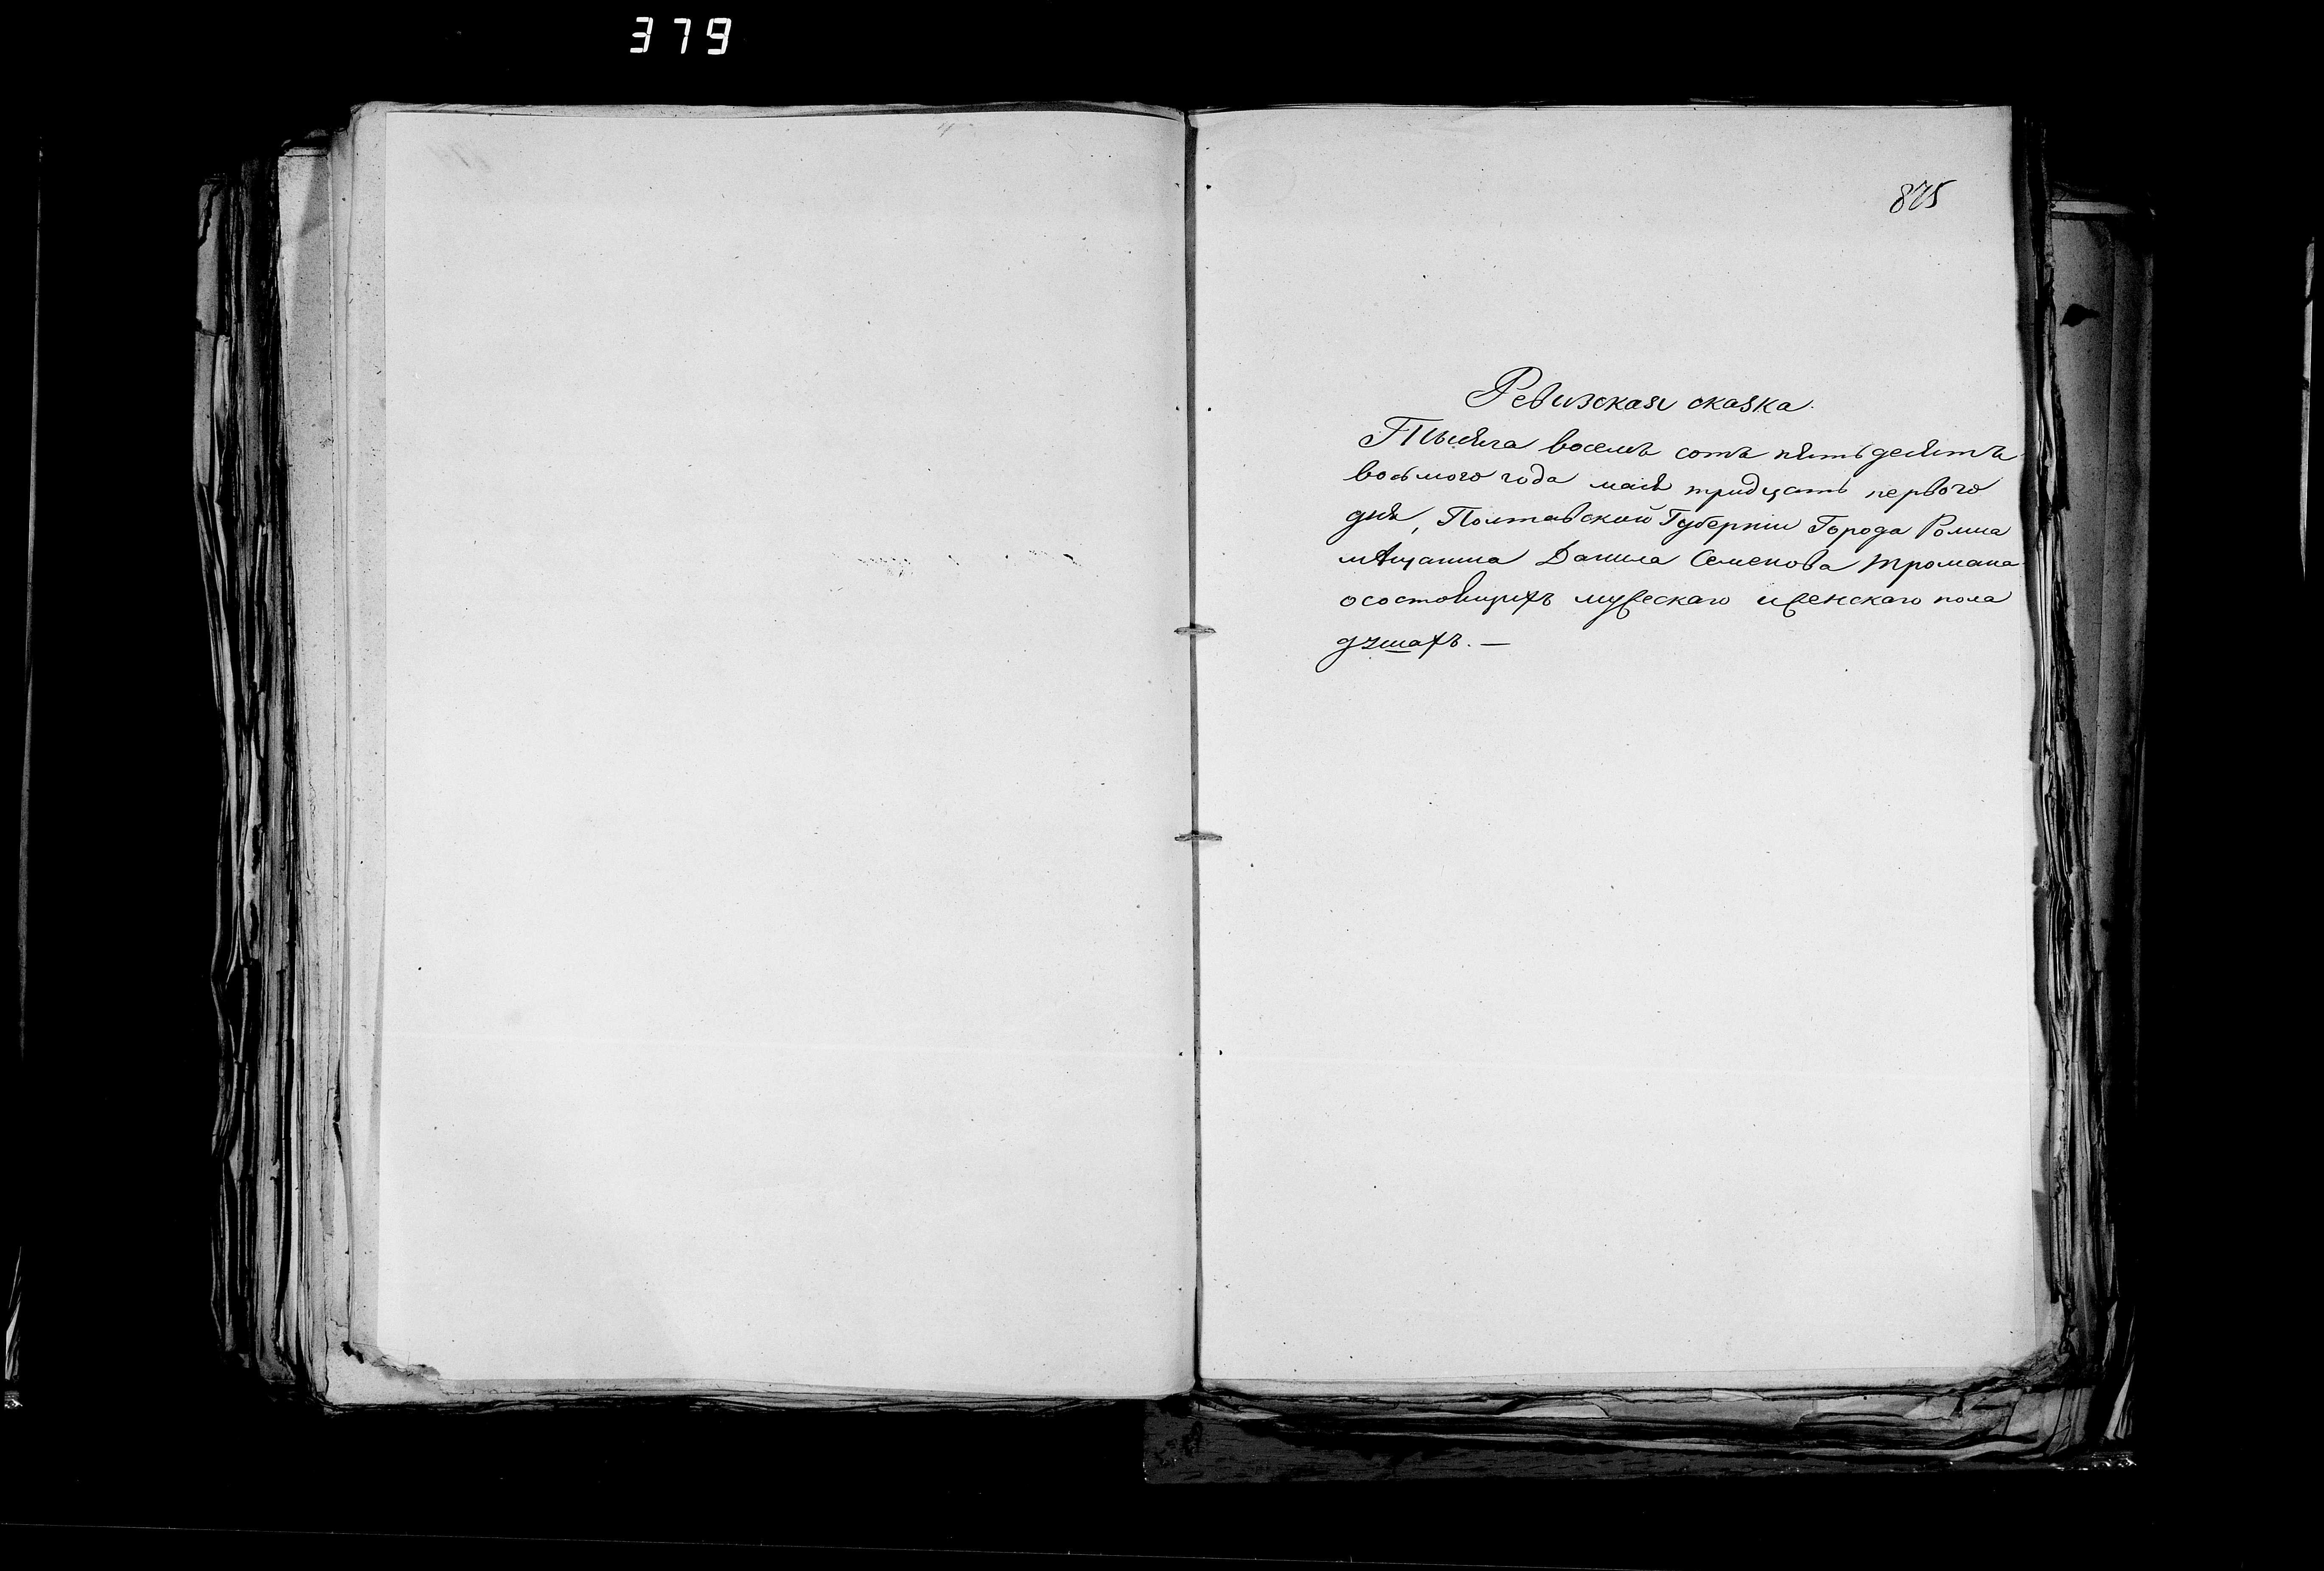 379
875
Ревизская сказка.
Тысяча восемь сотъ пятьдесятъ
восьмого года мая тридцать первого
дня, Полтавской Губерніи Города Ромна
мѣщанина Данила Семенова Тромана
о состоящихъ мужескаго и женскаго пола
душахъ. —